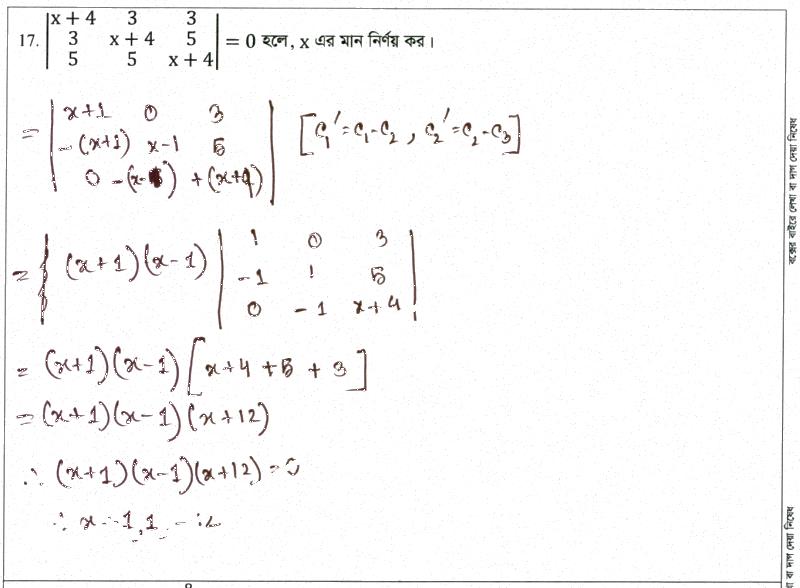 17. | x + 4 3 3 |
| 3 x + 4 5 | = 0 হলে, x এর মান নির্ণয় কর।
| 5 5 x + 4 |
= | x+1 0 3 |
| -(x+1) x-1 5 | [c₁' = c₁-c₂ , c₂' = c₂-c₃]
| 0 -(x- ) +(x+4) |
= { (x+1)(x-1) | 1 0 3 |
| -1 1 5 |
| 0 -1 x+4 |
= (x+1)(x-1) [x+4 +5 + 3]
= (x+1)(x-1)(x+12)
∴ (x+1)(x-1)(x+12) = 0
∴ x = -1, 1
বক্সের বাইরে লেখা বা দাগ দেয়া নিষেধ
বা দাগ দেয়া নিষেধ